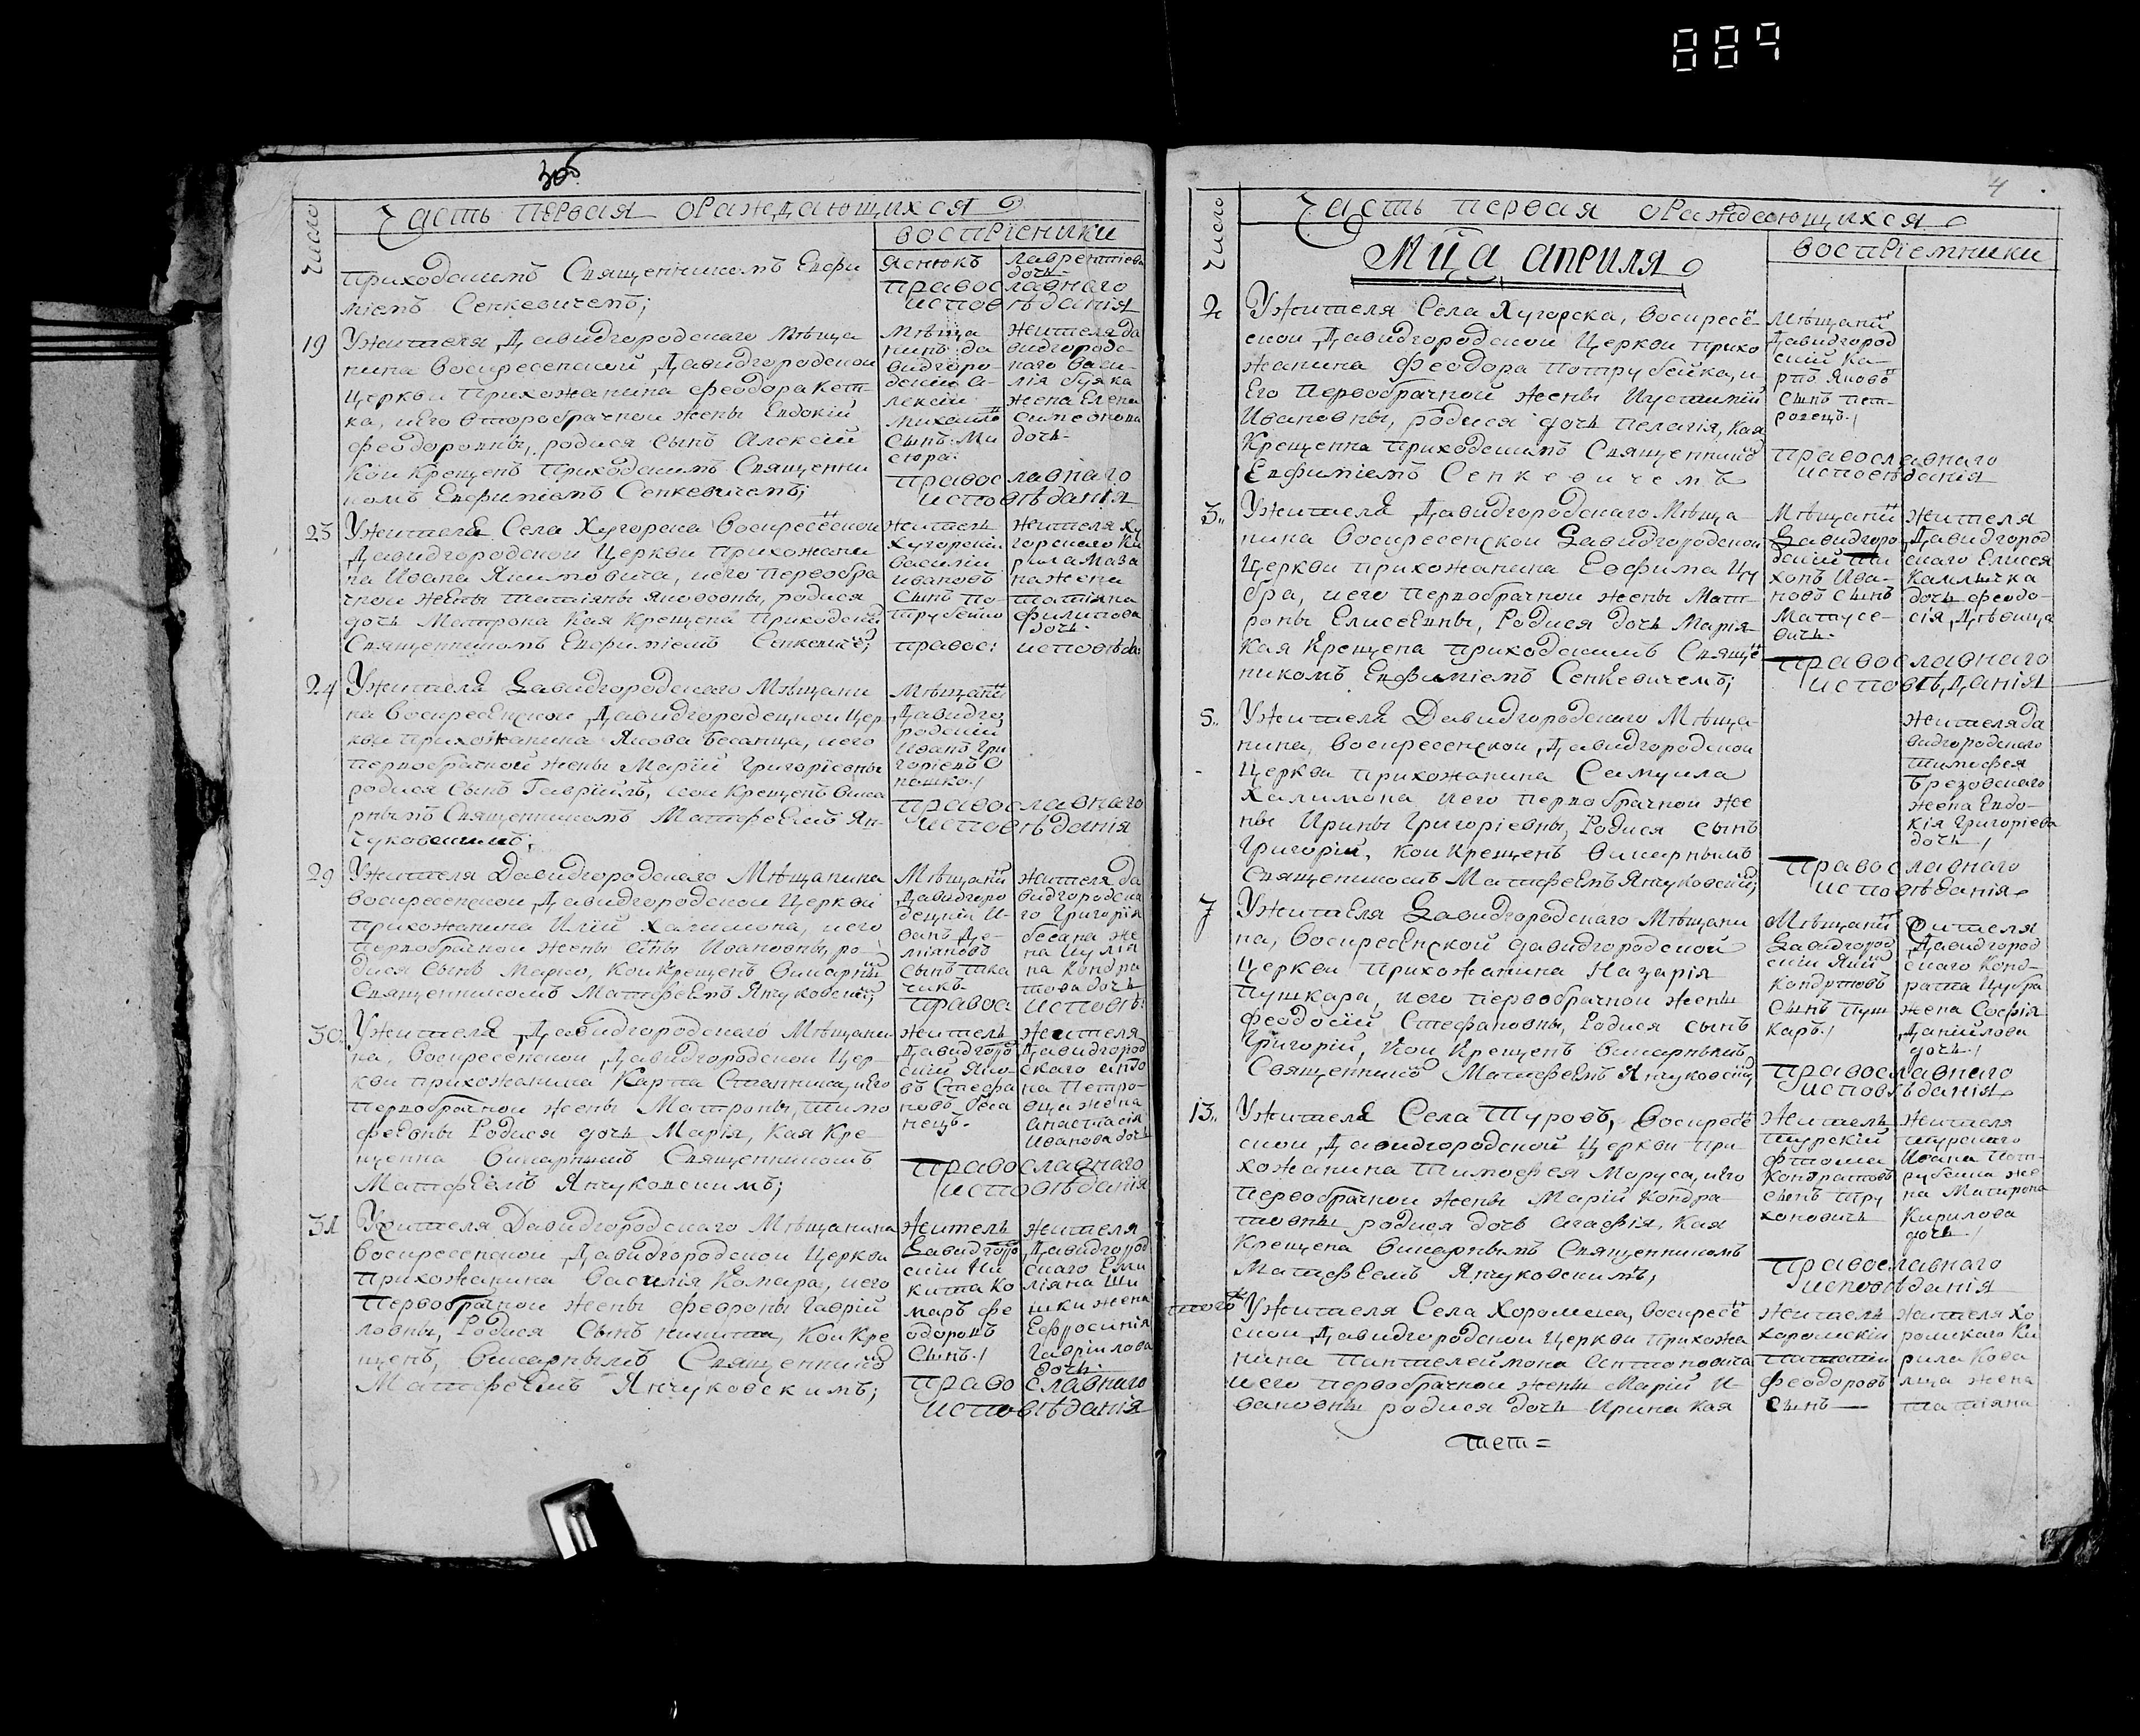 889
3об
число
Часть первая ораждающихся
воспрiемники
приходскимъ Священникомъ Евфи
мiемъ Сенкевичемъ;
Яснюкъ
Лаврентiева
дочь
православнаго
исповѣданiя
19
Ужителя Давидгородскаго Мѣща
нина Воскресенской Давидгородской
Церкви Прихожанина Феодора Кот
ка, иего второбрачной жены Евдокiй
Феодоровны, родися сынъ Алексiй
кои крещенъ Приходскимъ Священни
комъ Евфимiемъ Сенкевичемъ;
Мѣща
нинъ да
видгоро
дскiй А
лексiй
Михаило
сынъ Ми
сюра
жителя да
видгородс
каго Васи
лiя Буяка
жена Елена
Симеонова
дочь
православнаго
исповѣданiя
23
Ужителя Села Хугорска Воскресеской
Давидгородской Церкви Прихожани
на Ивана Якимовича, иего первобра
чной жены Татiяны Якововны, родися
дочь Матрона Кая Крещена Приходский
Священникомъ Евфимiемъ Сенкевиче;
житель
Хугорскiй
Василiй
Ивановъ
сынъ По
трубейко
жителя Ху
горскаго Ки
рила Маза
на жена
Татiяна
Филипова
дочь
правос: исповѣда:
24
Ужителя Давидгородскаго Мѣщани
на Воскресенской Давидгородецкой Цер
кви прихожанина Якова Бесанца, иего
первобрачной жены Марiй Григорiевны
родися сынъ Гаврiилъ, кои крещенъ вика
рнымъ Священникомъ Матфеемъ Ян
чуковскимъ;
Мѣщани
Давидго
родскiй
Иванъ Гри
горiевъ О
ношко
православнаго
исповѣданiя
29
Ужителя Давидгородскаго Мѣщанина
Воскресенской Давидгородской Церкви
Прихожанина Илiй Халимона, иего
первобрачной жены Аны Ивановны, ро
дися сынъ Марко, кои крещенъ викарны
Священникомъ Матфеемъ Янчуковский;
Мѣщани
Давидгоро
децкiй И
ванъ Де
мiяновъ
сынъ Тка
чикъ
жителя Да
видгородска
го Григорiя
Бесана же
на Иулiя
на Кондра
това дочь
правос: исповѣ:
30
Ужителя Давидгородскаго Мѣщани
на, Воскресенской Давидгородской Цер
кви прихожанина Карпа Станника, иего
первобрачной жены Матроны, Тимо
феевны Родися дочь Марiя, Кая Кре
щенна викарнымъ Священникомъ
Матфеемъ Янчуковскимъ;
житель
Давидгоро
скiй Яко
въ Стефа
новъ Беса
нецъ
жителя
Давидгород
скаго Анто
на Петро
вца жена
Анастасiя
Иванова дочь
православнаго
исповѣданiя
31
Ужителя Давидгородскаго Мѣщанина
Воскресенской Давидгородской Церкви
прихожанина Василiя Комара, иего
первобрачной жены Февроны Гаврiй
ловны, Родися сынъ Никита, Кои Кре
щенъ, викарнымъ Священнико
Матфеемъ Янчуковскимъ;
житель
Давидгоро
скiй Ни
кита Ко
маръ Фе
одоровъ
сынъ
жителя
Давидгород
скаго Еми
лiяна Ши
шки жена
Ефросинiя
Гаврiилова
дочь
православнаго
исповѣданiя
4
число
Часть первая ораждающихся
воспрiемники
Мца априля
2
Ужителя Села Хугорска, Воскресе
ской Давидгородской Церкви прихо
жанина Феодора Потрубейка, и
Его Первобрачной жены Иустинiй
Ивановны, родися дочь Пелагiя, Кая
Крещенна приходскимъ Священнико
Евфимiемъ Сенкевичемъ
Мѣщани
Давидгород
скiй Ка
рпъ Яково
сынъ Пет
ровецъ
православнаго
исповѣданiя
3
Ужителя Давидгородскаго Мѣща
нина Воскресенской Давидгородской
Церкви прихожанина Евфима Цу
бра, иего первобрачной жены Мат
роны Елисеевны, Родися дочь Марiя
Кая Крещена приходскимъ Свяще
никомъ Евфимiемъ Сенкевичемъ;
Мѣщани
Давидгоро
дскiй Ти
хонъ Ива
новъ сынъ
Матусе
вичъ
жителя
Давидгород
скаго Елисея
Камлычка
дочь Феодо
сiя, Дѣвица
православнаго
исповѣданiя
5
Ужителя Давидгородскаго Мѣща
нина, Воскресенской Давидгородской
Церкви прихожанина Самуила
Халимона иего первобрачной же
ны Ирины Григорiевны, Родися сынъ
Григорiй, кои крещенъ викарнымъ
Священникомъ Матфеемъ Янчуковский;
жителя да
видгородскаго
Тимофея
Брезовскаго
жена Евдо
кiя Григорiева
дочь
православнаго
исповѣданiя
7
Ужителя Давидгородскаго Мѣщани
на, Воскресенской Давидгородской
Церкви прихожанина Назарiя
Пушкара, иего первобрачной жены
Феодосiй Стефановны, Родися сынъ
Григорiй, кои крещенъ викарнымъ
Священнико Матфеемъ Янчуковский
Мѣщани
Давидгород
скiй Яки
Кондратовъ
сынъ Пуш
каръ
жителя
Давидгород
скаго Конд
рата Цубра
жена Софiя
Данiйлова
дочь
православнаго
исповѣданiя
13
Ужителя Села Туровъ, Воскресе
ской Давидгородской Церкви при
хожанина Тимофея Моруса, иего
первобрачной жены Марiй Кондра
товны родися дочь Агафiя, Кая
Крещена викарнымъ Священникомъ
Матфеемъ Янчуковскимъ;
житель
турскiй
Фтома
Кондратовъ
сынъ Тру
хоновичъ
жителя
турскаго
Ивана Пот
рубейка же
на Матрона
Кирилова
дочь
православнаго
исповѣданiя
того
Ужителя Села Хоромска, Воскресе
ской Давидгородской Церкви прихожа
нина Пантелеймона Антоновича
иего первобрачной жены Марiй И
вановны родися дочь Ирина Кая
житель
хоромскiй
Феодоровъ
сынъ
жителя Хо
ромскаго Ки
рила Кова
лца жена
Татiяна